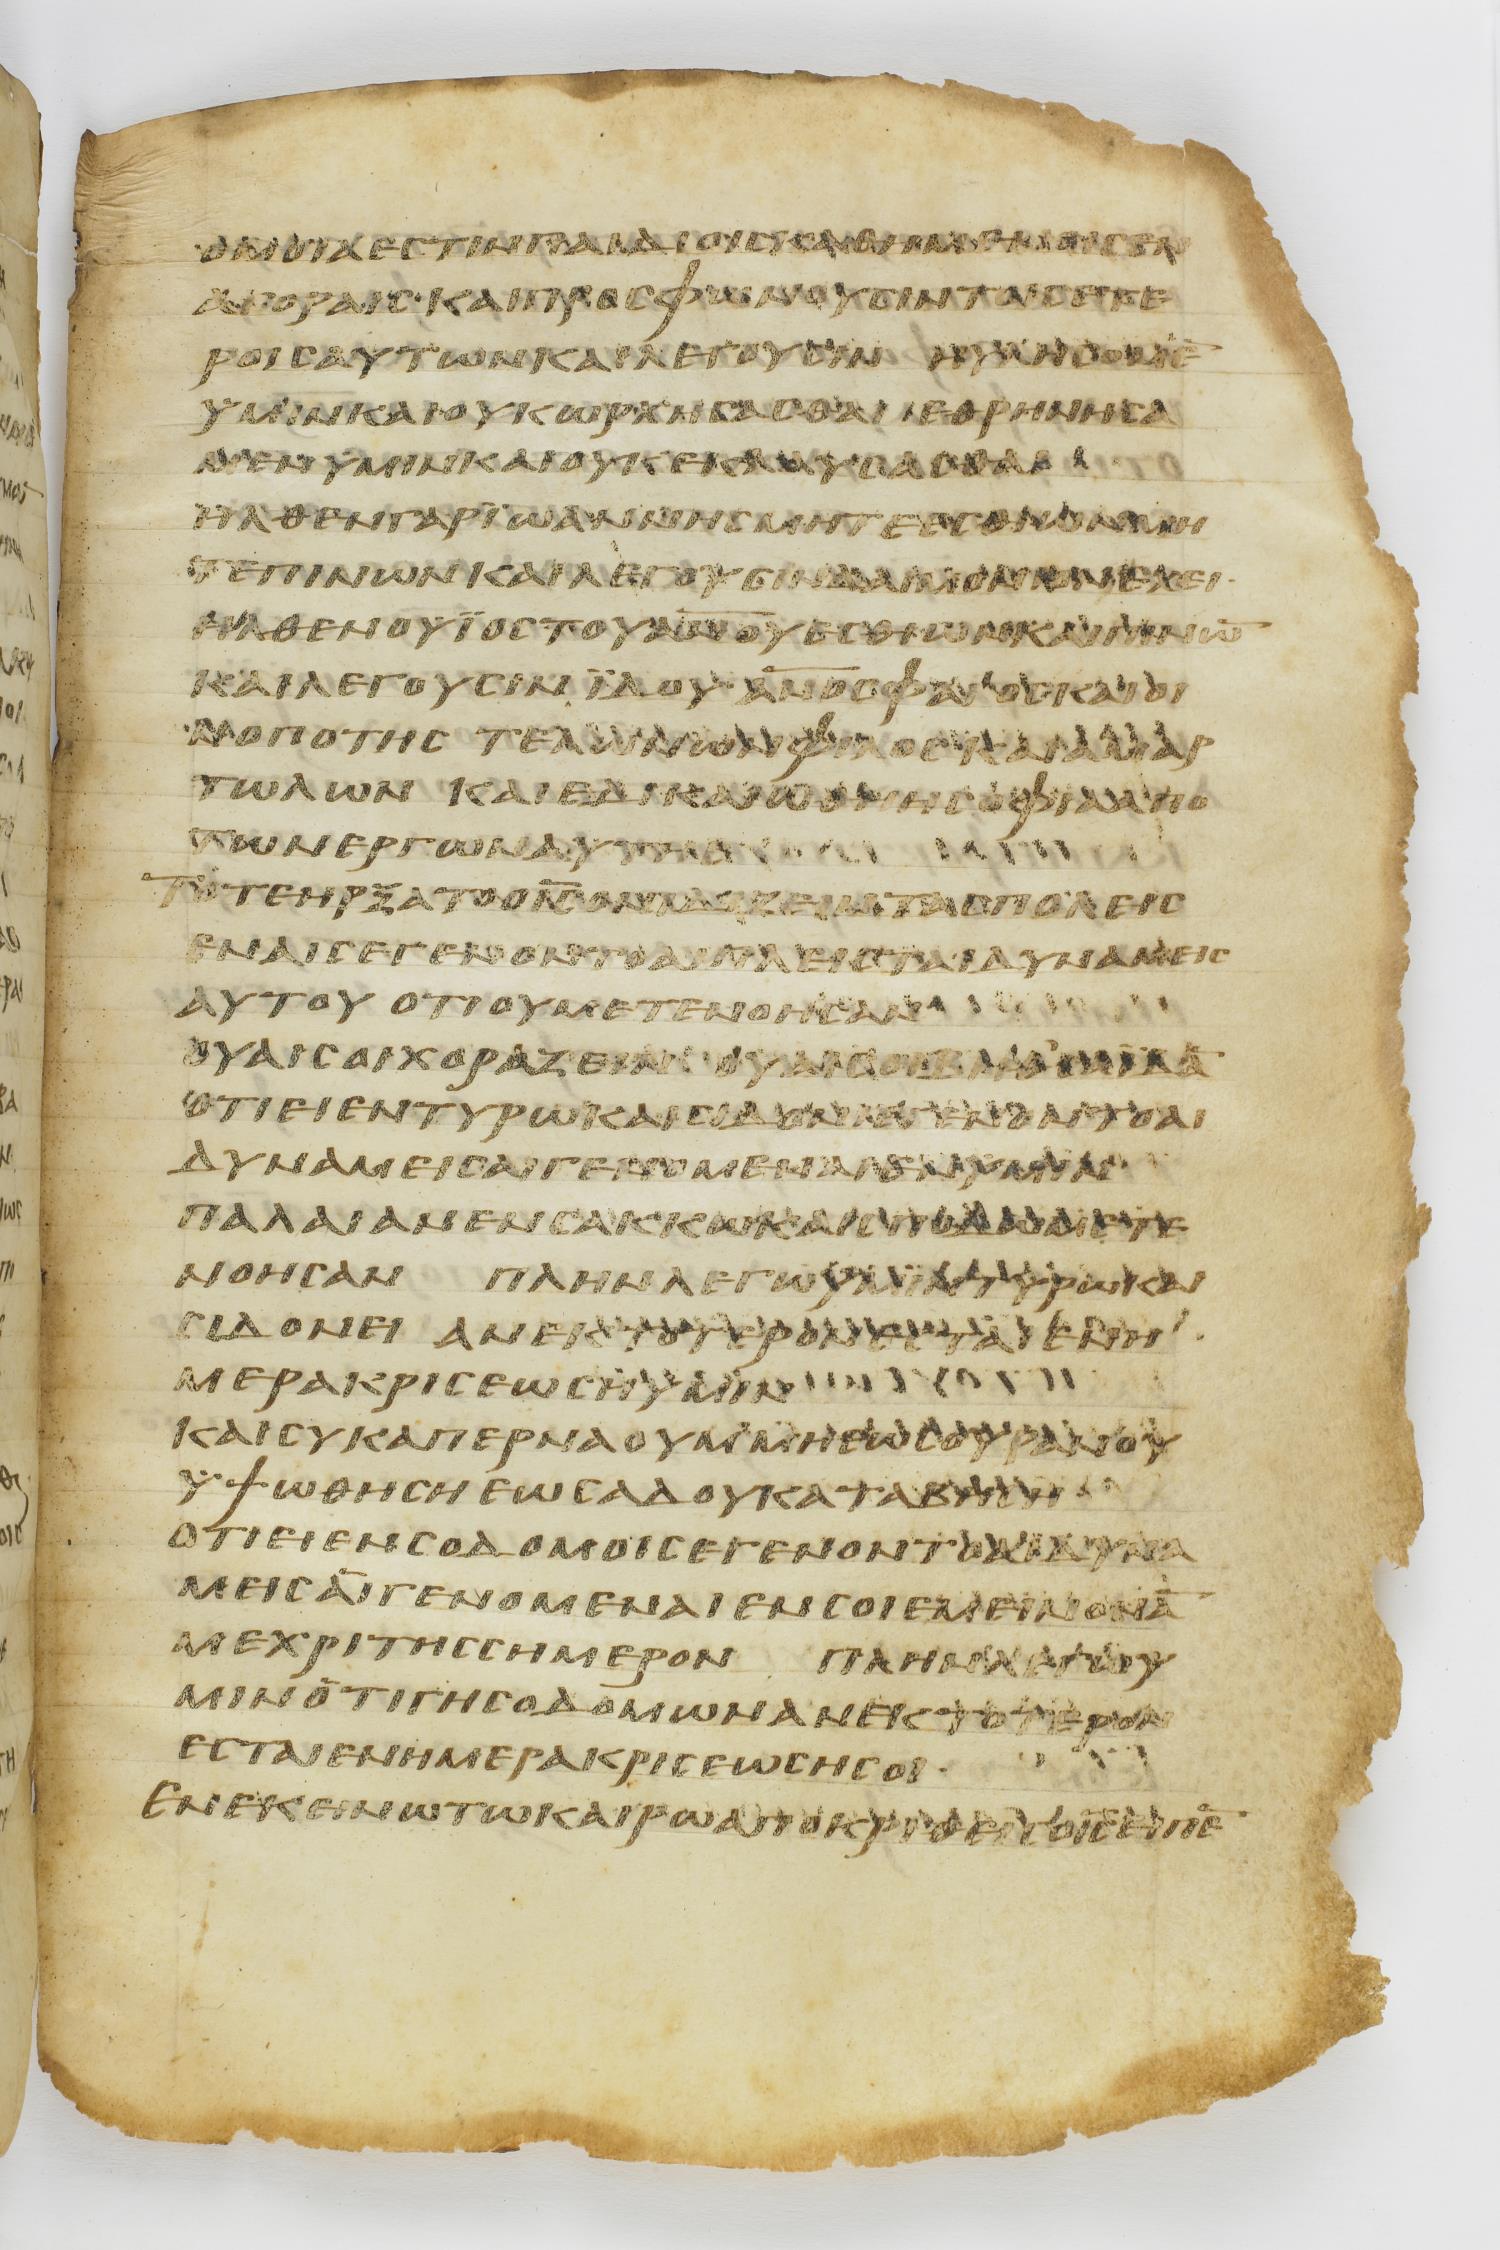 ομοιαεστινπαιδιοισκαθημενοισεν
αγοραισ·καιπροσφωνουσιντοισετε
ροισαυτωνκαιλεγουσιν ηυλησαμε̅
υμινκαιουκωρχησασθαι εθρηνησα
μενυμινκαιουκεκοψασθαι
ηλθενγαρϊωαννησμητεεσθιωνμη
τεπινωνκαιλεγουσινδαιμονιονεχει·
ηλθενουϊοστουα̅ν̅ο̅υ̅εσθιωνκαιπινω̅
καιλεγουσιν ϊδου α̅ν̅ο̅σ̅φαγοσκαιοι
νοποτησ τελωνωνφιλοσκαιαμαρ
τωλων καιεδικαιωθηησοφιααπο
τωνεργωναυτησ
Τοτεηρξατοοι̅σ̅ονειδιζειντασπολεισ
εναισεγενοντοαιπλεισταιδυναμεισ
αυτου οτιουμετενοησαν
ουαισοιχοραζειν ουαισοιβηθσαιδα̅
οτιειεντυρωκαισιδωνιεγενοντοαι
δυναμεισαιγενομεναιενυμιν
παλαιανενσακκωκαισποδωμετε
νοησαν πληνλεγωυμιντυρωκαι
σιδονει ανεκτοτερονεσταιενη
μερακρισεωσηυμιν
καισυκαπερναουμμηεωσουρανου
υψωθησηεωσαδουκαταβηση
οτιειενσοδομοισεγενοντοαιδυνα
μεισαιγενομεναιενσοιεμεινονα̅
μεχριτησσημερον πληνλεγωυ
μινοτιγησοδομωνανεκτοτερον
εσταιενημερακρισεωσησοι·
Ενεκεινωτωκαιρωαποκριθεισοι̅σ̅ειπε̅